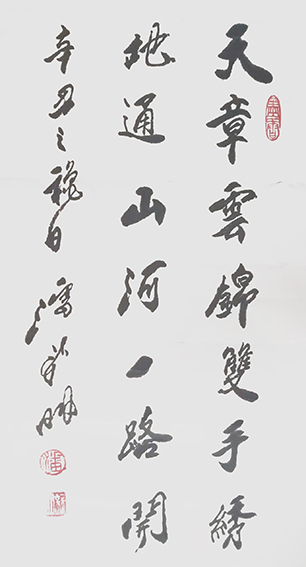 天章雲錦雙手綉
地通山河一路開
辛丑之穐日 潘明